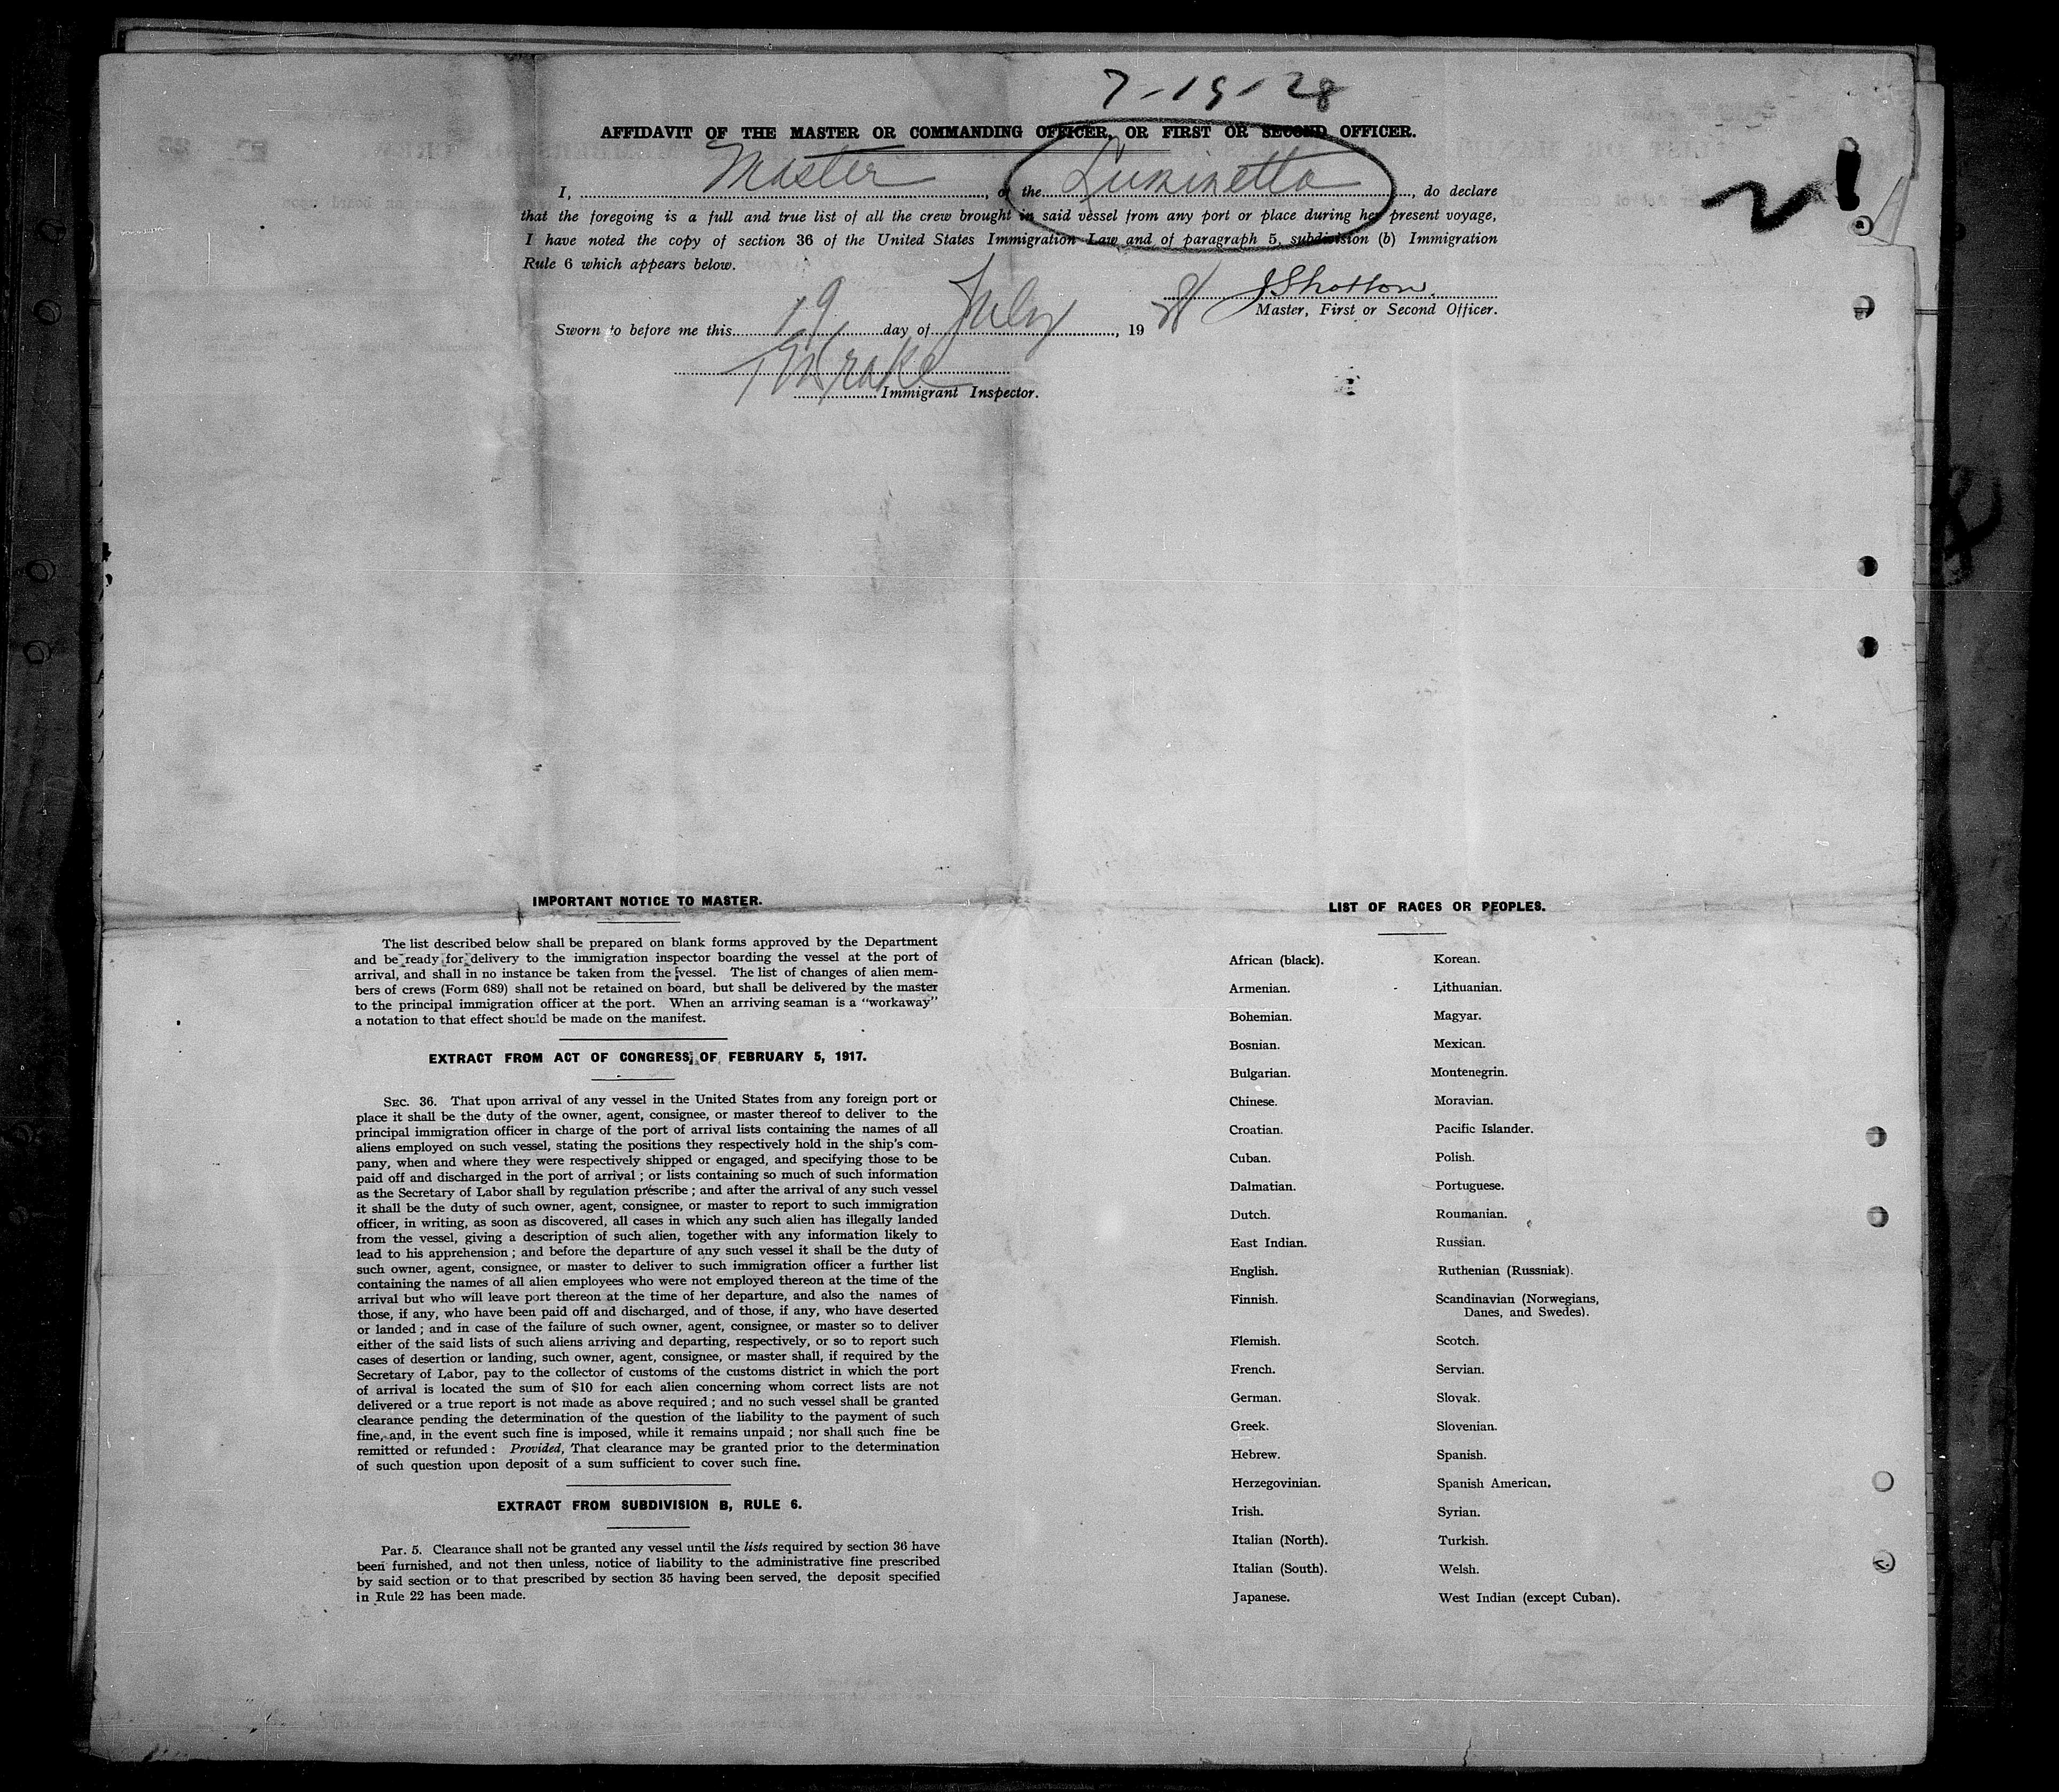 7-19-28
AFFIDAVIT OF THE MASTER OR COMMANDING OFFICER, OR FIRST OR SECOND OFFICER.
I, Master, of the Luminetta, do declare
that the foregoing is a full and true list of all the crew brought in said vessel from any port or place during her present voyage,
I have noted the copy of section 36 of the United States Immigration Law and of paragraph 5, subdivision (b) Immigration
Rule 6 which appears below.
JShotton.
Master, First or Second Officer.
Sworn to before me this 19 day of July, 1928
Immigrant Inspector.
IMPORTANT NOTICE TO MASTER.
The list described below shall be prepared on blank forms approved by the Department
and be ready for delivery to the immigration inspector boarding the vessel at the port of
arrival, and shall in no instance be taken from the vessel. The list of changes of alien mem-
bers of crews (Form 689) shall not be retained on board, but shall be delivered by the master
to the principal immigration officer at the port. When an arriving seaman is a "workaway"
a notation to that effect should be made on the manifest.
EXTRACT FROM ACT OF CONGRESS OF FEBRUARY 5, 1917.
SEC. 36. That upon arrival of any vessel in the United States from any foreign port or
place it shall be the duty of the owner, agent, consignee, or master thereof to deliver to the
principal immigration officer in charge of the port of arrival lists containing the names of all
aliens employed on such vessel, stating the positions they respectively hold in the ship's com-
pany, when and where they were respectively shipped or engaged, and specifying those to be
paid off and discharged in the port of arrival; or lists containing so much of such information
as the Secretary of Labor shall by regulation prescribe; and after the arrival of any such vessel
it shall be the duty of such owner, agent, consignee, or master to report to such immigration
officer, in writing, as soon as discovered, all cases in which any such alien has illegally landed
from the vessel, giving a description of such alien, together with any information likely to
lead to his apprehension; and before the departure of any such vessel it shall be the duty of
such owner, agent, consignee, or master to deliver to such immigration officer a further list
containing the names of all alien employees who were not employed thereon at the time of the
arrival but who will leave port thereon at the time of her departure, and also the names of
those, if any, who have been paid off and discharged, and of those, if any, who have deserted
or landed; and in case of the failure of such owner, agent, consignee, or master so to deliver
either of the said lists of such aliens arriving and departing, respectively, or so to report such
cases of desertion or landing, such owner, agent, consignee, or master shall, if required by the
Secretary of Labor, pay to the collector of customs of the customs district in which the port
of arrival is located the sum of $10 for each alien concerning whom correct lists are not
delivered or a true report is not made as above required; and no such vessel shall be granted
clearance pending the determination of the question of the liability to the payment of such
fine, and, in the event such fine is imposed, while it remains unpaid; nor shall such fine be
remitted or refunded: Provided, That clearance may be granted prior to the determination
of such question upon deposit of a sum sufficient to cover such fine.
EXTRACT FROM SUBDIVISION B, RULE 6.
Par. 5. Clearance shall not be granted any vessel until the lists required by section 36 have
been furnished, and not then unless, notice of liability to the administrative fine prescribed
by said section or to that prescribed by section 35 having been served, the deposit specified
in Rule 22 has been made.
LIST OF RACES OR PEOPLES.
African (black). Korean.
Armenian. Lithuanian.
Bohemian. Magyar.
Bosnian. Mexican.
Bulgarian. Montenegrin.
Chinese. Moravian.
Croatian. Pacific Islander.
Cuban. Polish.
Dalmatian. Portuguese.
Dutch. Roumanian.
East Indian. Russian.
English. Ruthenian (Russniak).
Finnish. Scandinavian (Norwegians,
Danes, and Swedes).
Flemish. Scotch.
French. Servian.
German. Slovak.
Greek. Slovenian.
Hebrew. Spanish.
Herzegovinian. Spanish American.
Irish. Syrian.
Italian (North). Turkish.
Italian (South). Welsh.
Japanese. West Indian (except Cuban).